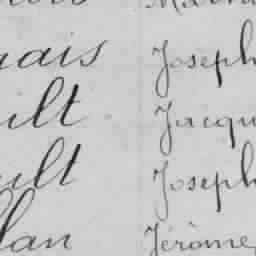 ais Joseph
ult Jacqu
ult Joseph
lan Jérôme